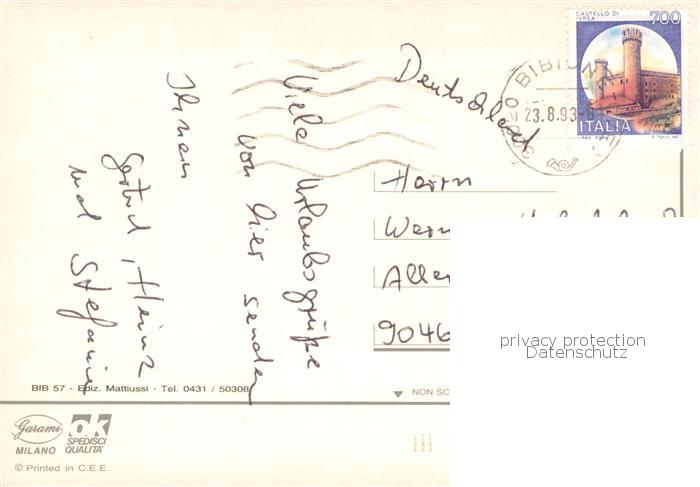 CASTELLO DI
IVREA
700
ITALIA
BIBIONE
23.8.93-8
Deutschland
Viele Urlaubsgrüße
von hier senden
Ihnen
Gertrud, Heinz
und Stefanie
Herrn
Wern
Aller
9046
privacy protection
Datenschutz
BIB 57 - Ediz. Mattiussi - Tel. 0431 / 50308
NON SC
Garami
MILANO
OK
SPEDISCI
QUALITÀ
© Printed in C.E.E.